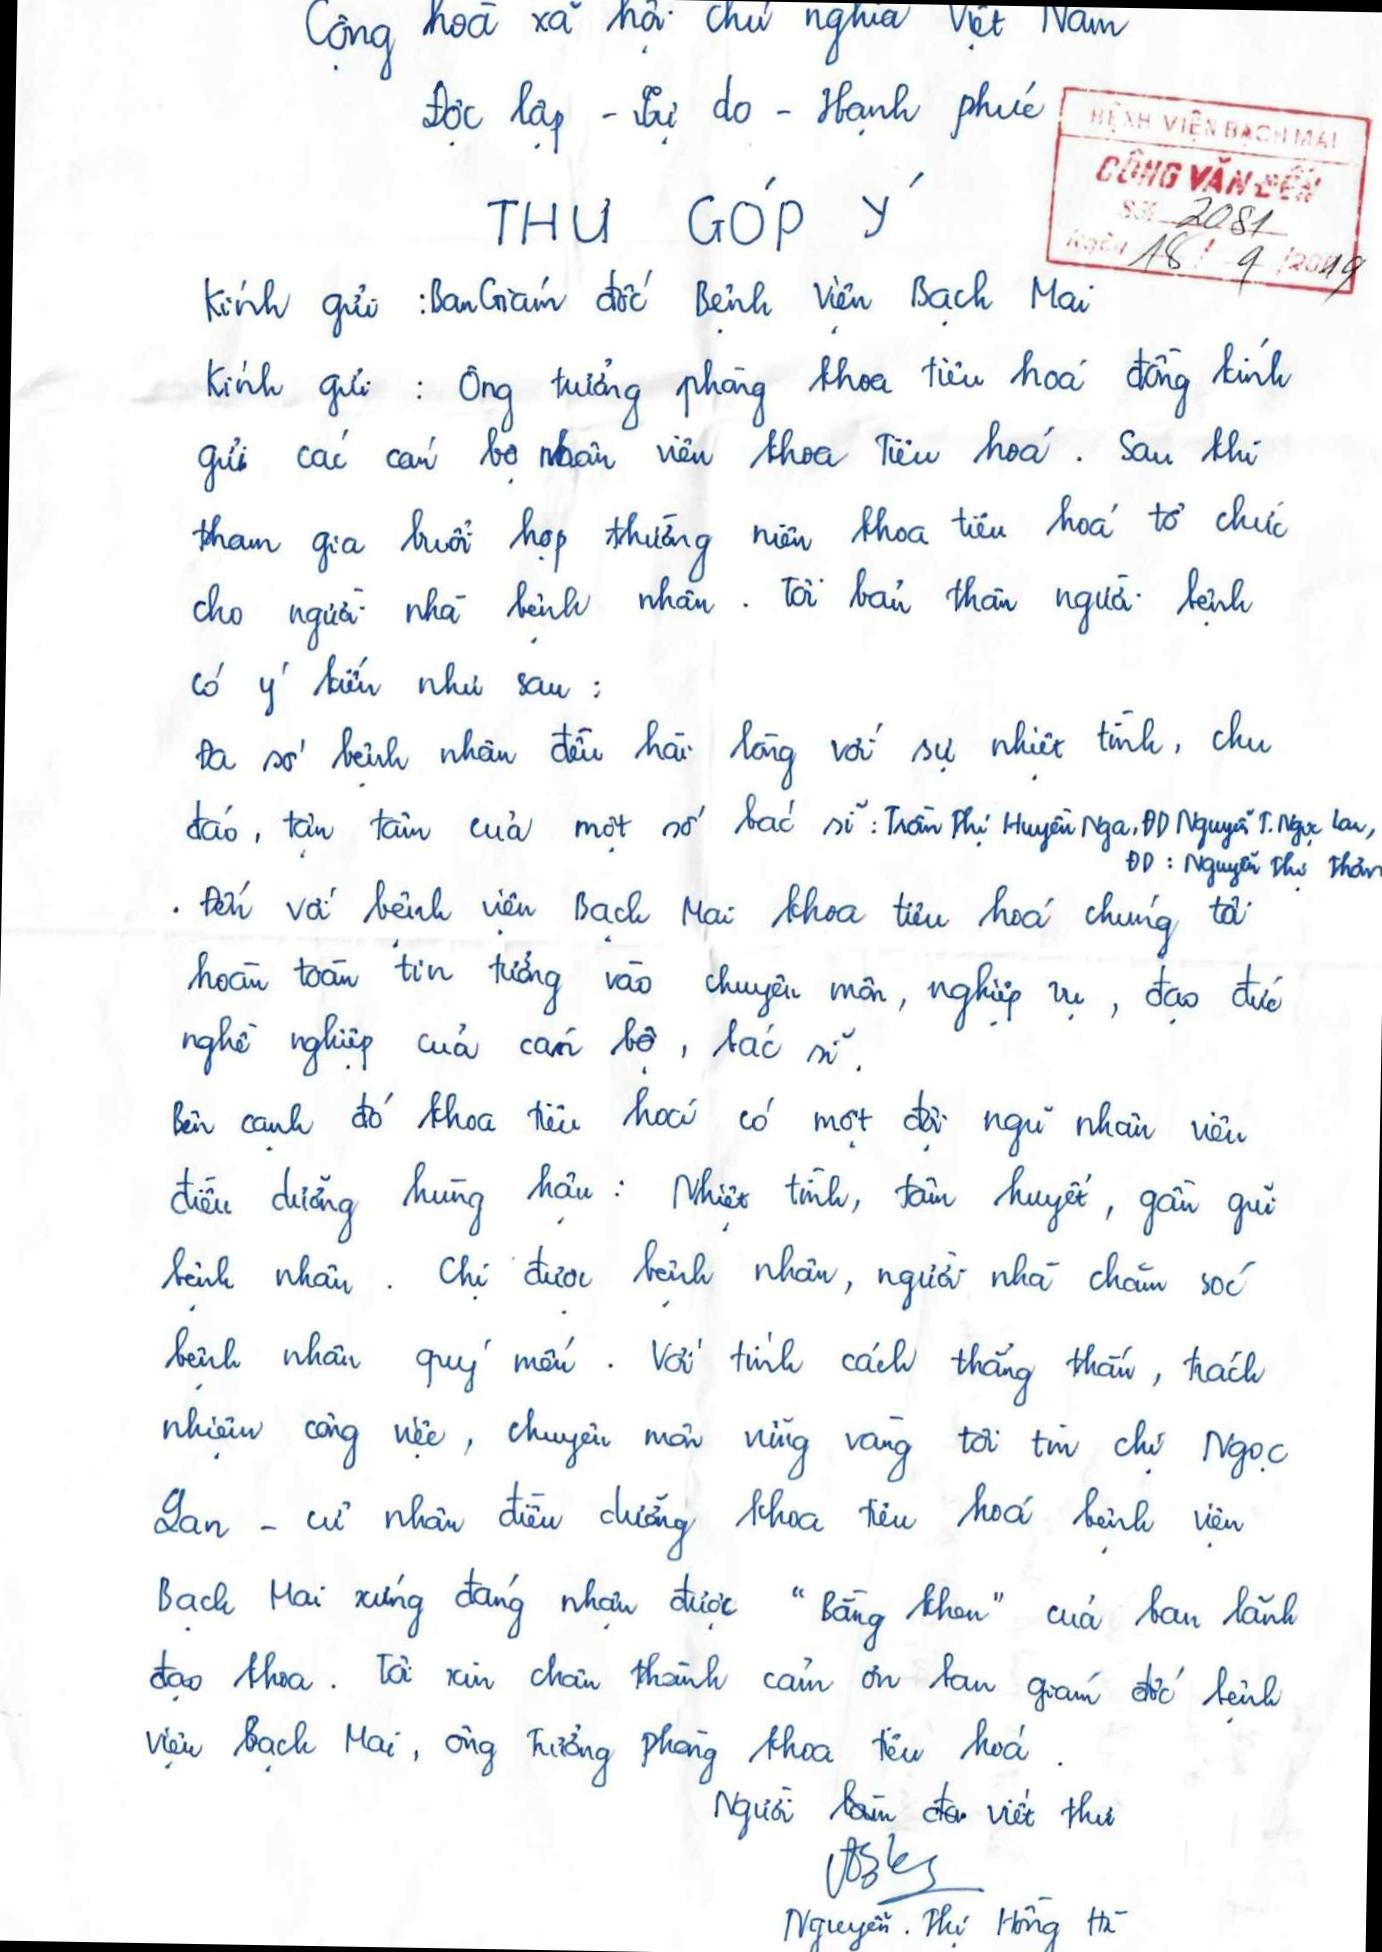 Cộng hoà xã hội chủ nghĩa Việt Nam
Độc lập - Tự do - Hạnh phúc
BỆNH VIỆN BẠCH MAI
CÔNG VĂN ĐẾN
Số 2081
Ngày 18/ 9 /2019
THƯ GÓP Ý
Kính gửi : Ban Giám đốc Bệnh viện Bạch Mai
Kính gửi : Ông trưởng phòng khoa tiêu hoá đồng kính
gửi các cán bộ nhân viên khoa Tiêu hoá. Sau khi
tham gia buổi họp thường niên khoa tiêu hoá tổ chức
cho người nhà bệnh nhân. Tôi bản thân người bệnh
có ý kiến như sau :
Đa số bệnh nhân đều hài lòng với sự nhiệt tình, chu
đáo, tận tâm của một số bác sĩ : Trần Thị Huyền Nga, ĐD Nguyễn T. Ngọc Lan,
ĐD : Nguyễn Thị Thắm
. Đến với bệnh viện Bạch Mai khoa tiêu hoá chúng tôi
hoàn toàn tin tưởng vào chuyên môn, nghiệp vụ, đạo đức
nghề nghiệp của cán bộ, bác sĩ.
Bên cạnh đó khoa tiêu hoá có một đội ngũ nhân viên
điều dưỡng hùng hậu : Nhiệt tình, tâm huyết, gần gũi
bệnh nhân. Chị được bệnh nhân, người nhà chăm sóc
bệnh nhân quý mến. Với tính cách thẳng thắn, trách
nhiệm công việc, chuyên môn vững vàng tôi tin chị Ngọc
Lan - cử nhân điều dưỡng khoa tiêu hoá bệnh viện
Bạch Mai xứng đáng nhận được "Bằng khen" của ban lãnh
đạo khoa. Tôi xin chân thành cảm ơn ban giám đốc bệnh
viện Bạch Mai, ông trưởng phòng khoa tiêu hoá.
Người làm đơn viết thư
Nguyễn. Thị Hồng Hà